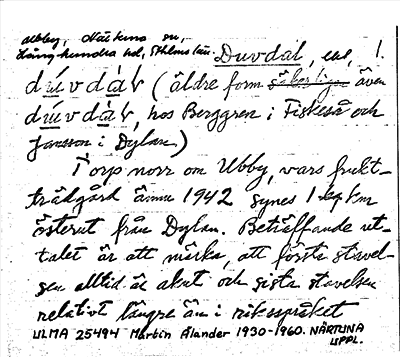 Ubby, Närtuna sn,
Långhundra hd, Sthlms län. Duvdal, ens, 1.
dúvdàl (äldre form säkerligen även
dúvdàl, hos Berggren i Fiskeså och
Jansson i Dylan.)
Torp norr om Ubby, vars frukt-
trädgård ännu 1942 synes 1 km
österut från Dylan. Beträffande ut-
talet är att märka, att första stavel-
sen alltid är akut och sista stavelsen
relativt längre än i riksspråket
ULMA 25494 Martin Ålander 1930-1960. NÄRTUNA
UPPL.